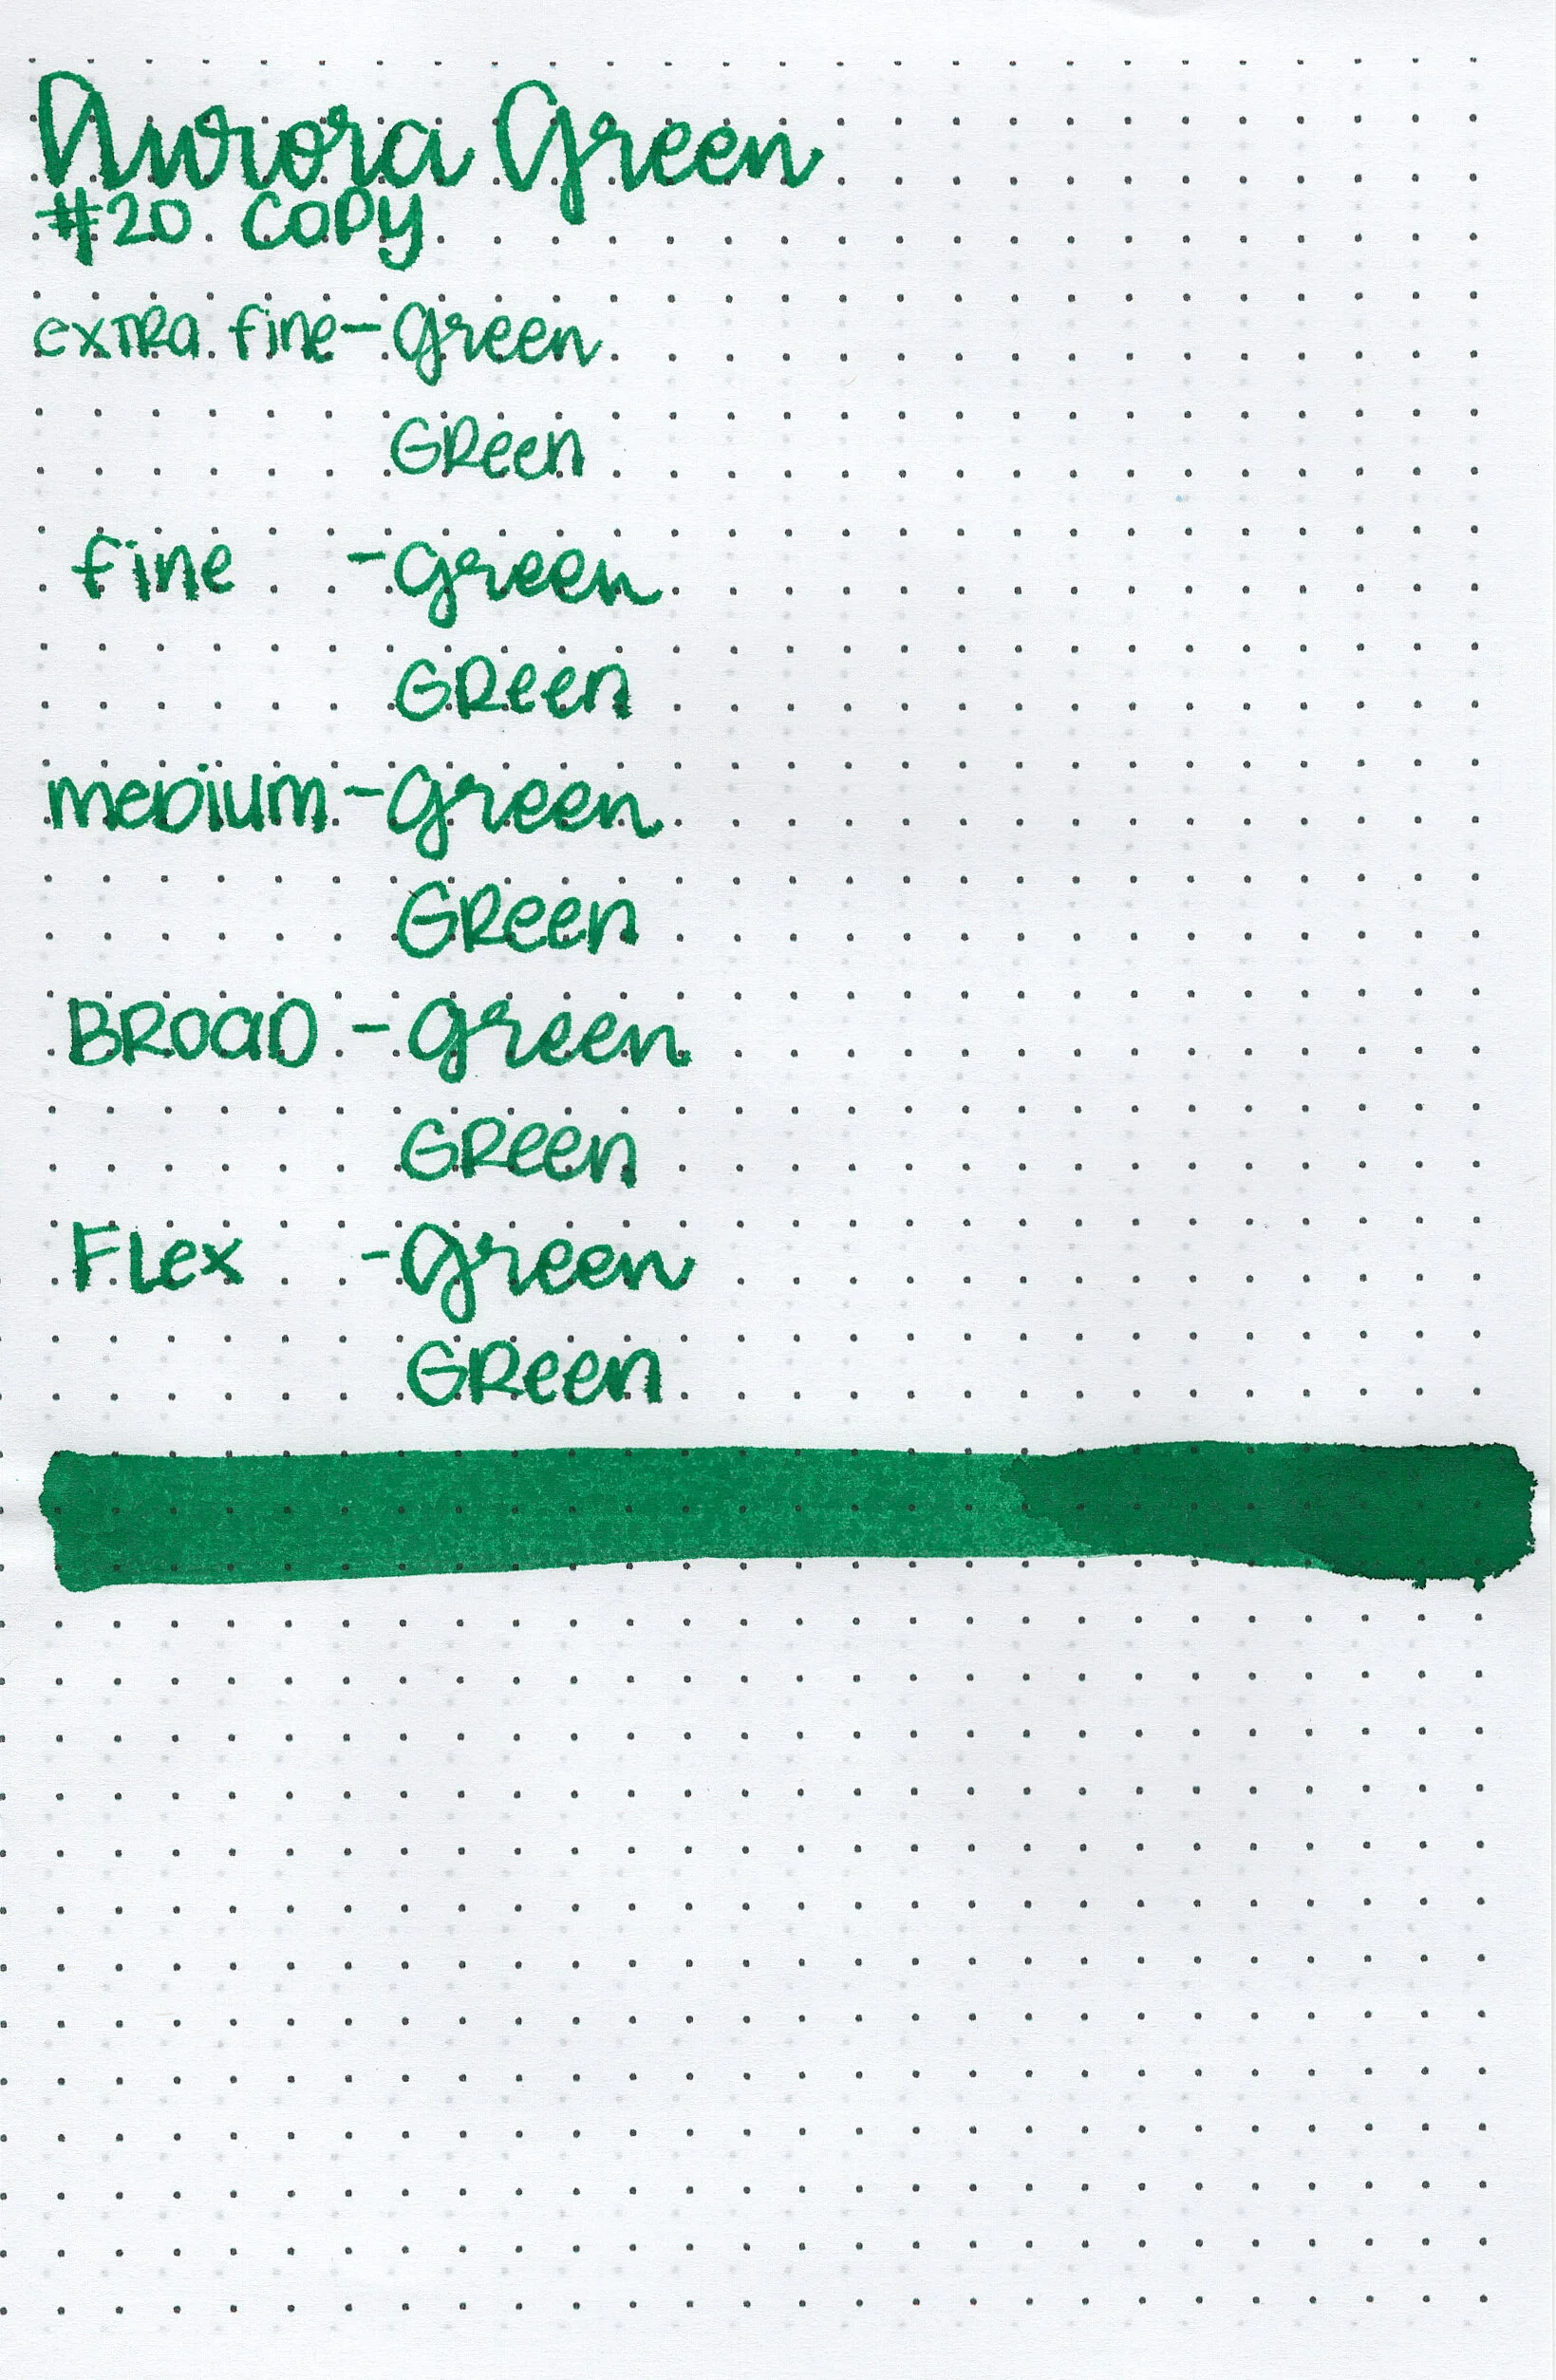 Aurora Green
#20 COPY
extra fine - green
GReen
fine - green
GReen
meDium - green
GReen
BROaD - green
GReen
FLex - green
GReen